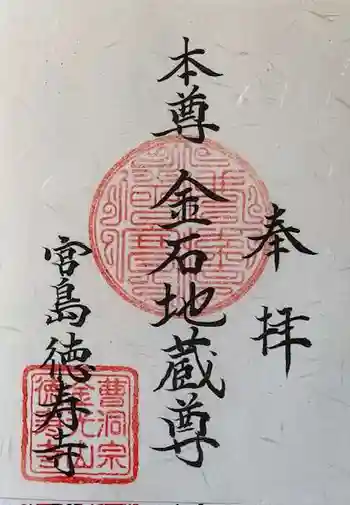 奉拝
本尊
金石地蔵尊
宮島徳寿寺
曹洞宗
金光山
徳寿寺